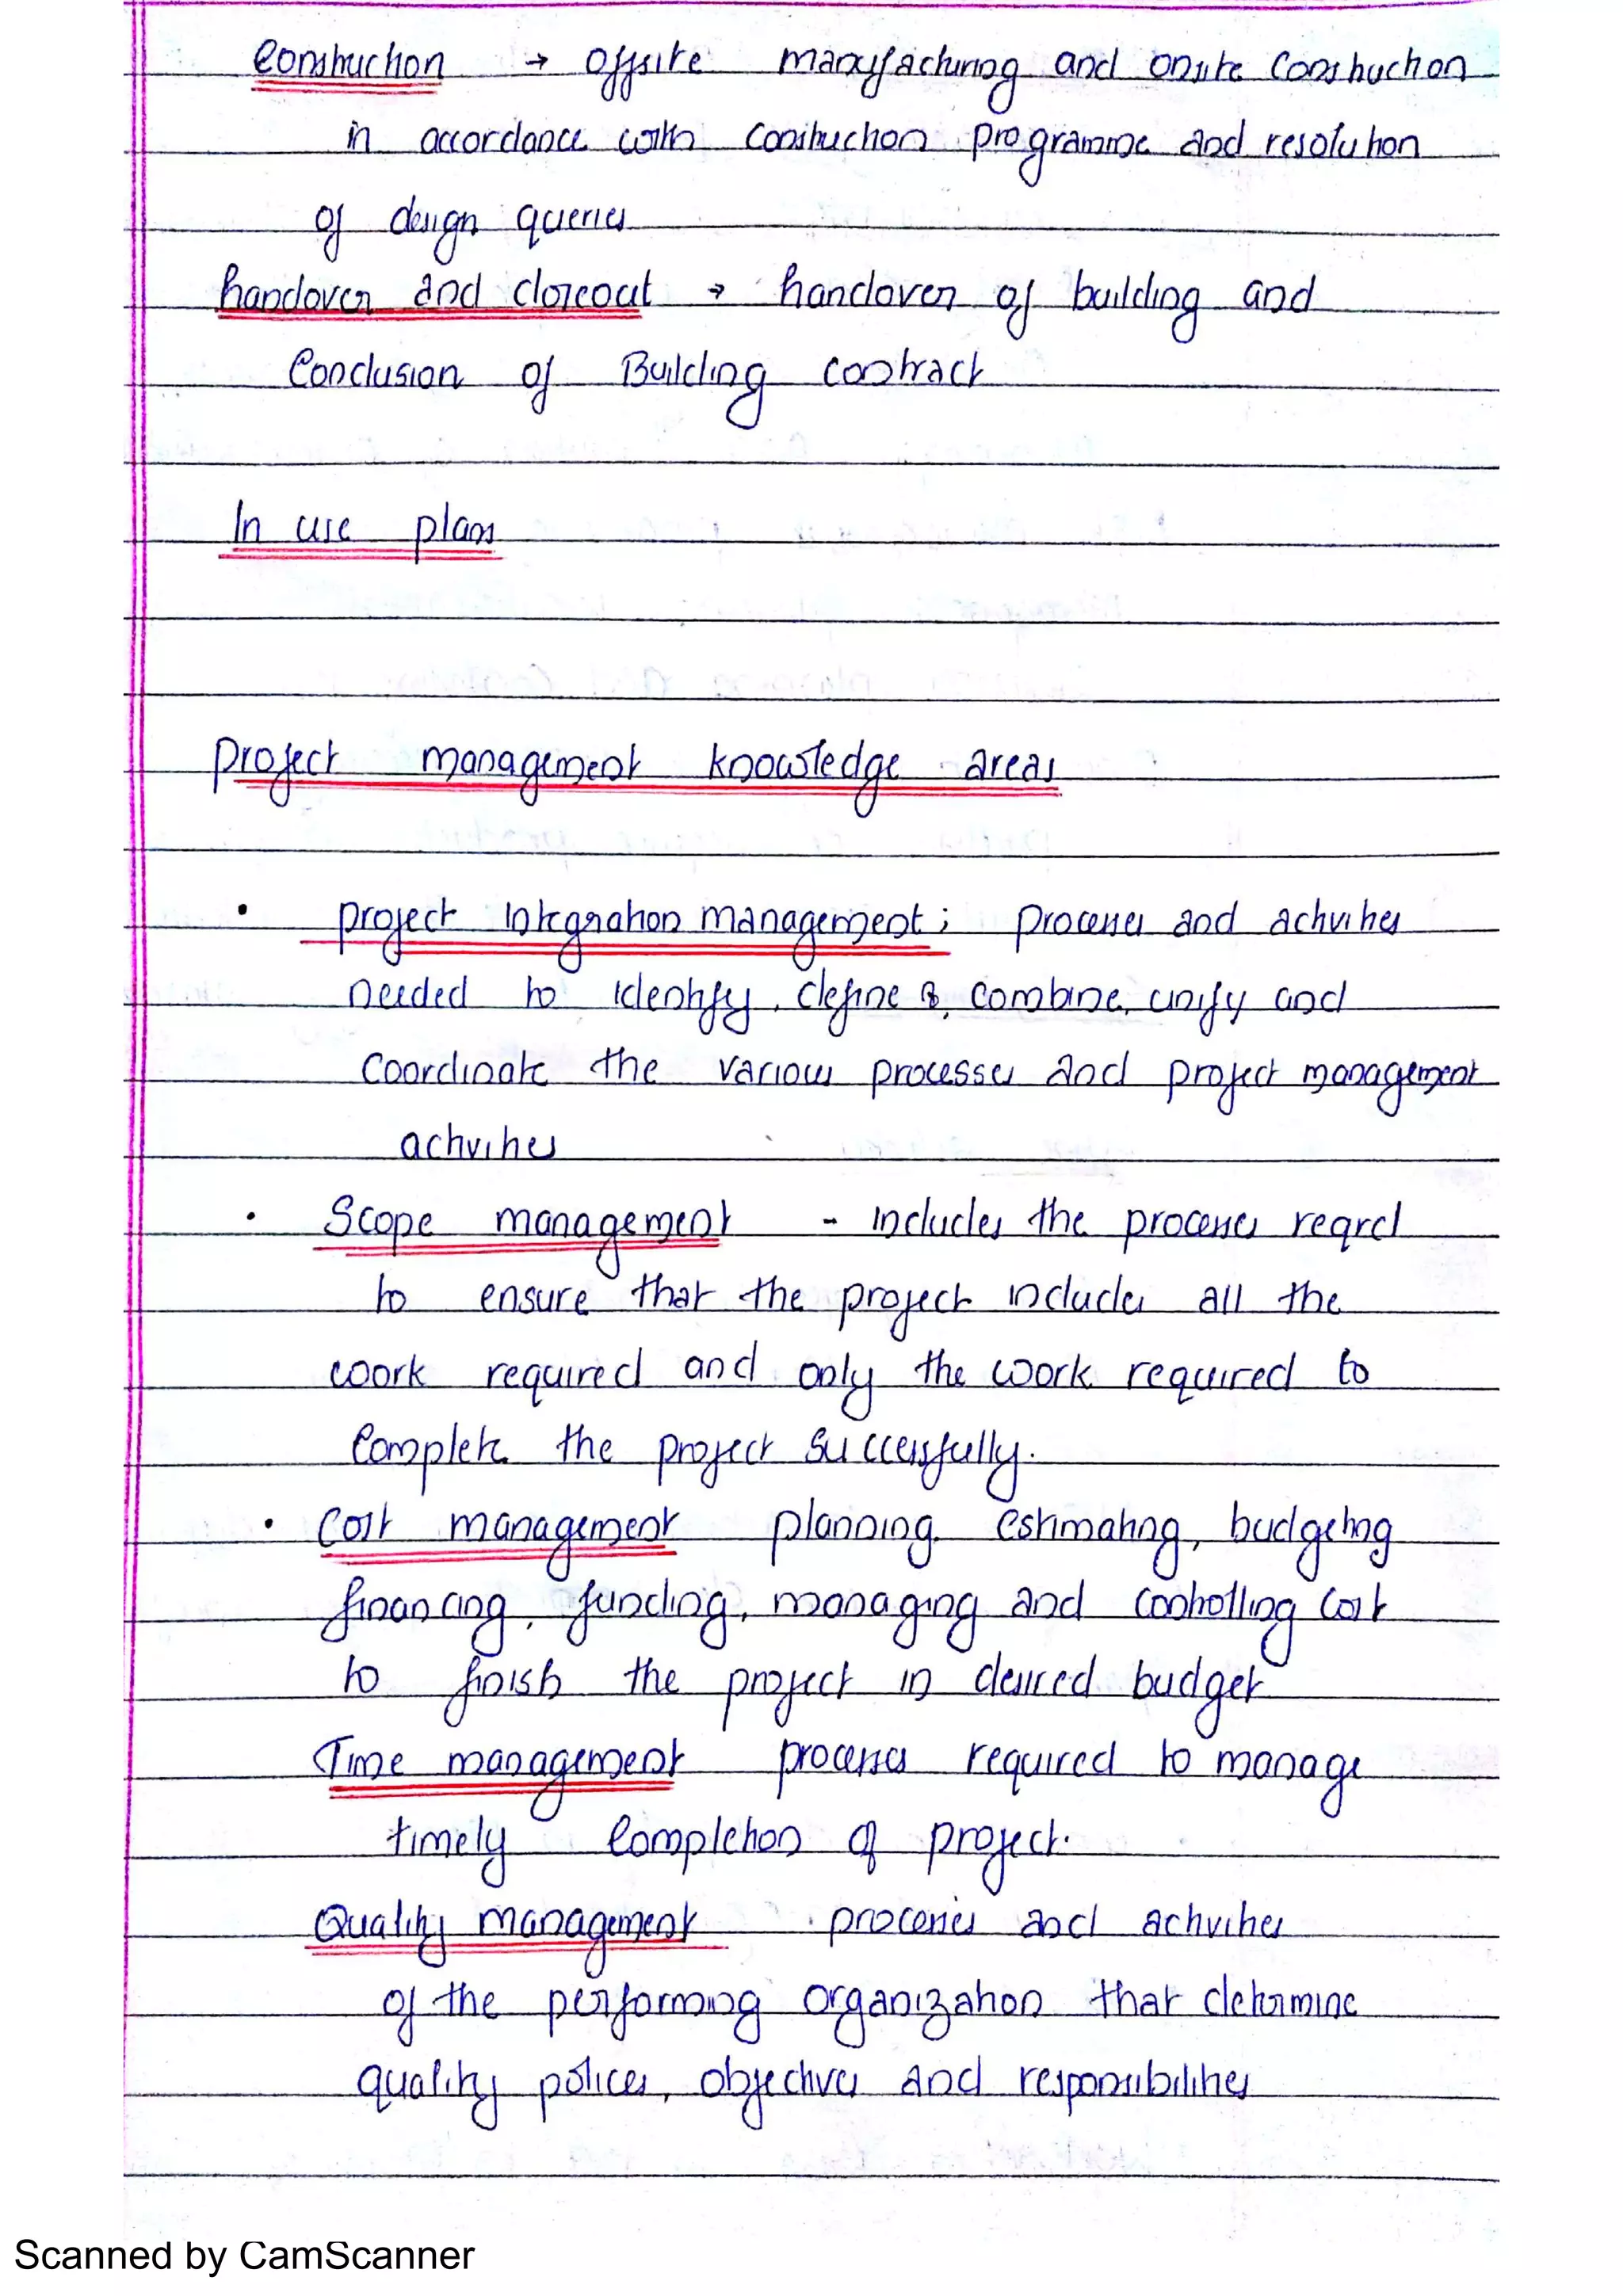 Construction → offsite manufacturing and onsite construction
in accordance with construction programme and resolution
of design queries
handover and closeout → handover of building and
Conclusion of Building contract
In use plans
Project management knowledge areas
• project integration management; processes and activities
needed to identify, define &, combine, unify and
coordinate the various processes and project management
activities
• Scope management - includes the processes reqrd
to ensure that the project includes all the
work required and only the work required to
Complete the project successfully.
• Cost management planning, estimating, budgeting
financing, funding, managing and controlling cost
to finish the project in desired budget
Time management processes required to manage
timely Completion of project.
Quality management processes and activities
of the performing organization that determine
quality polices, objectives and responsibilities
Scanned by CamScanner